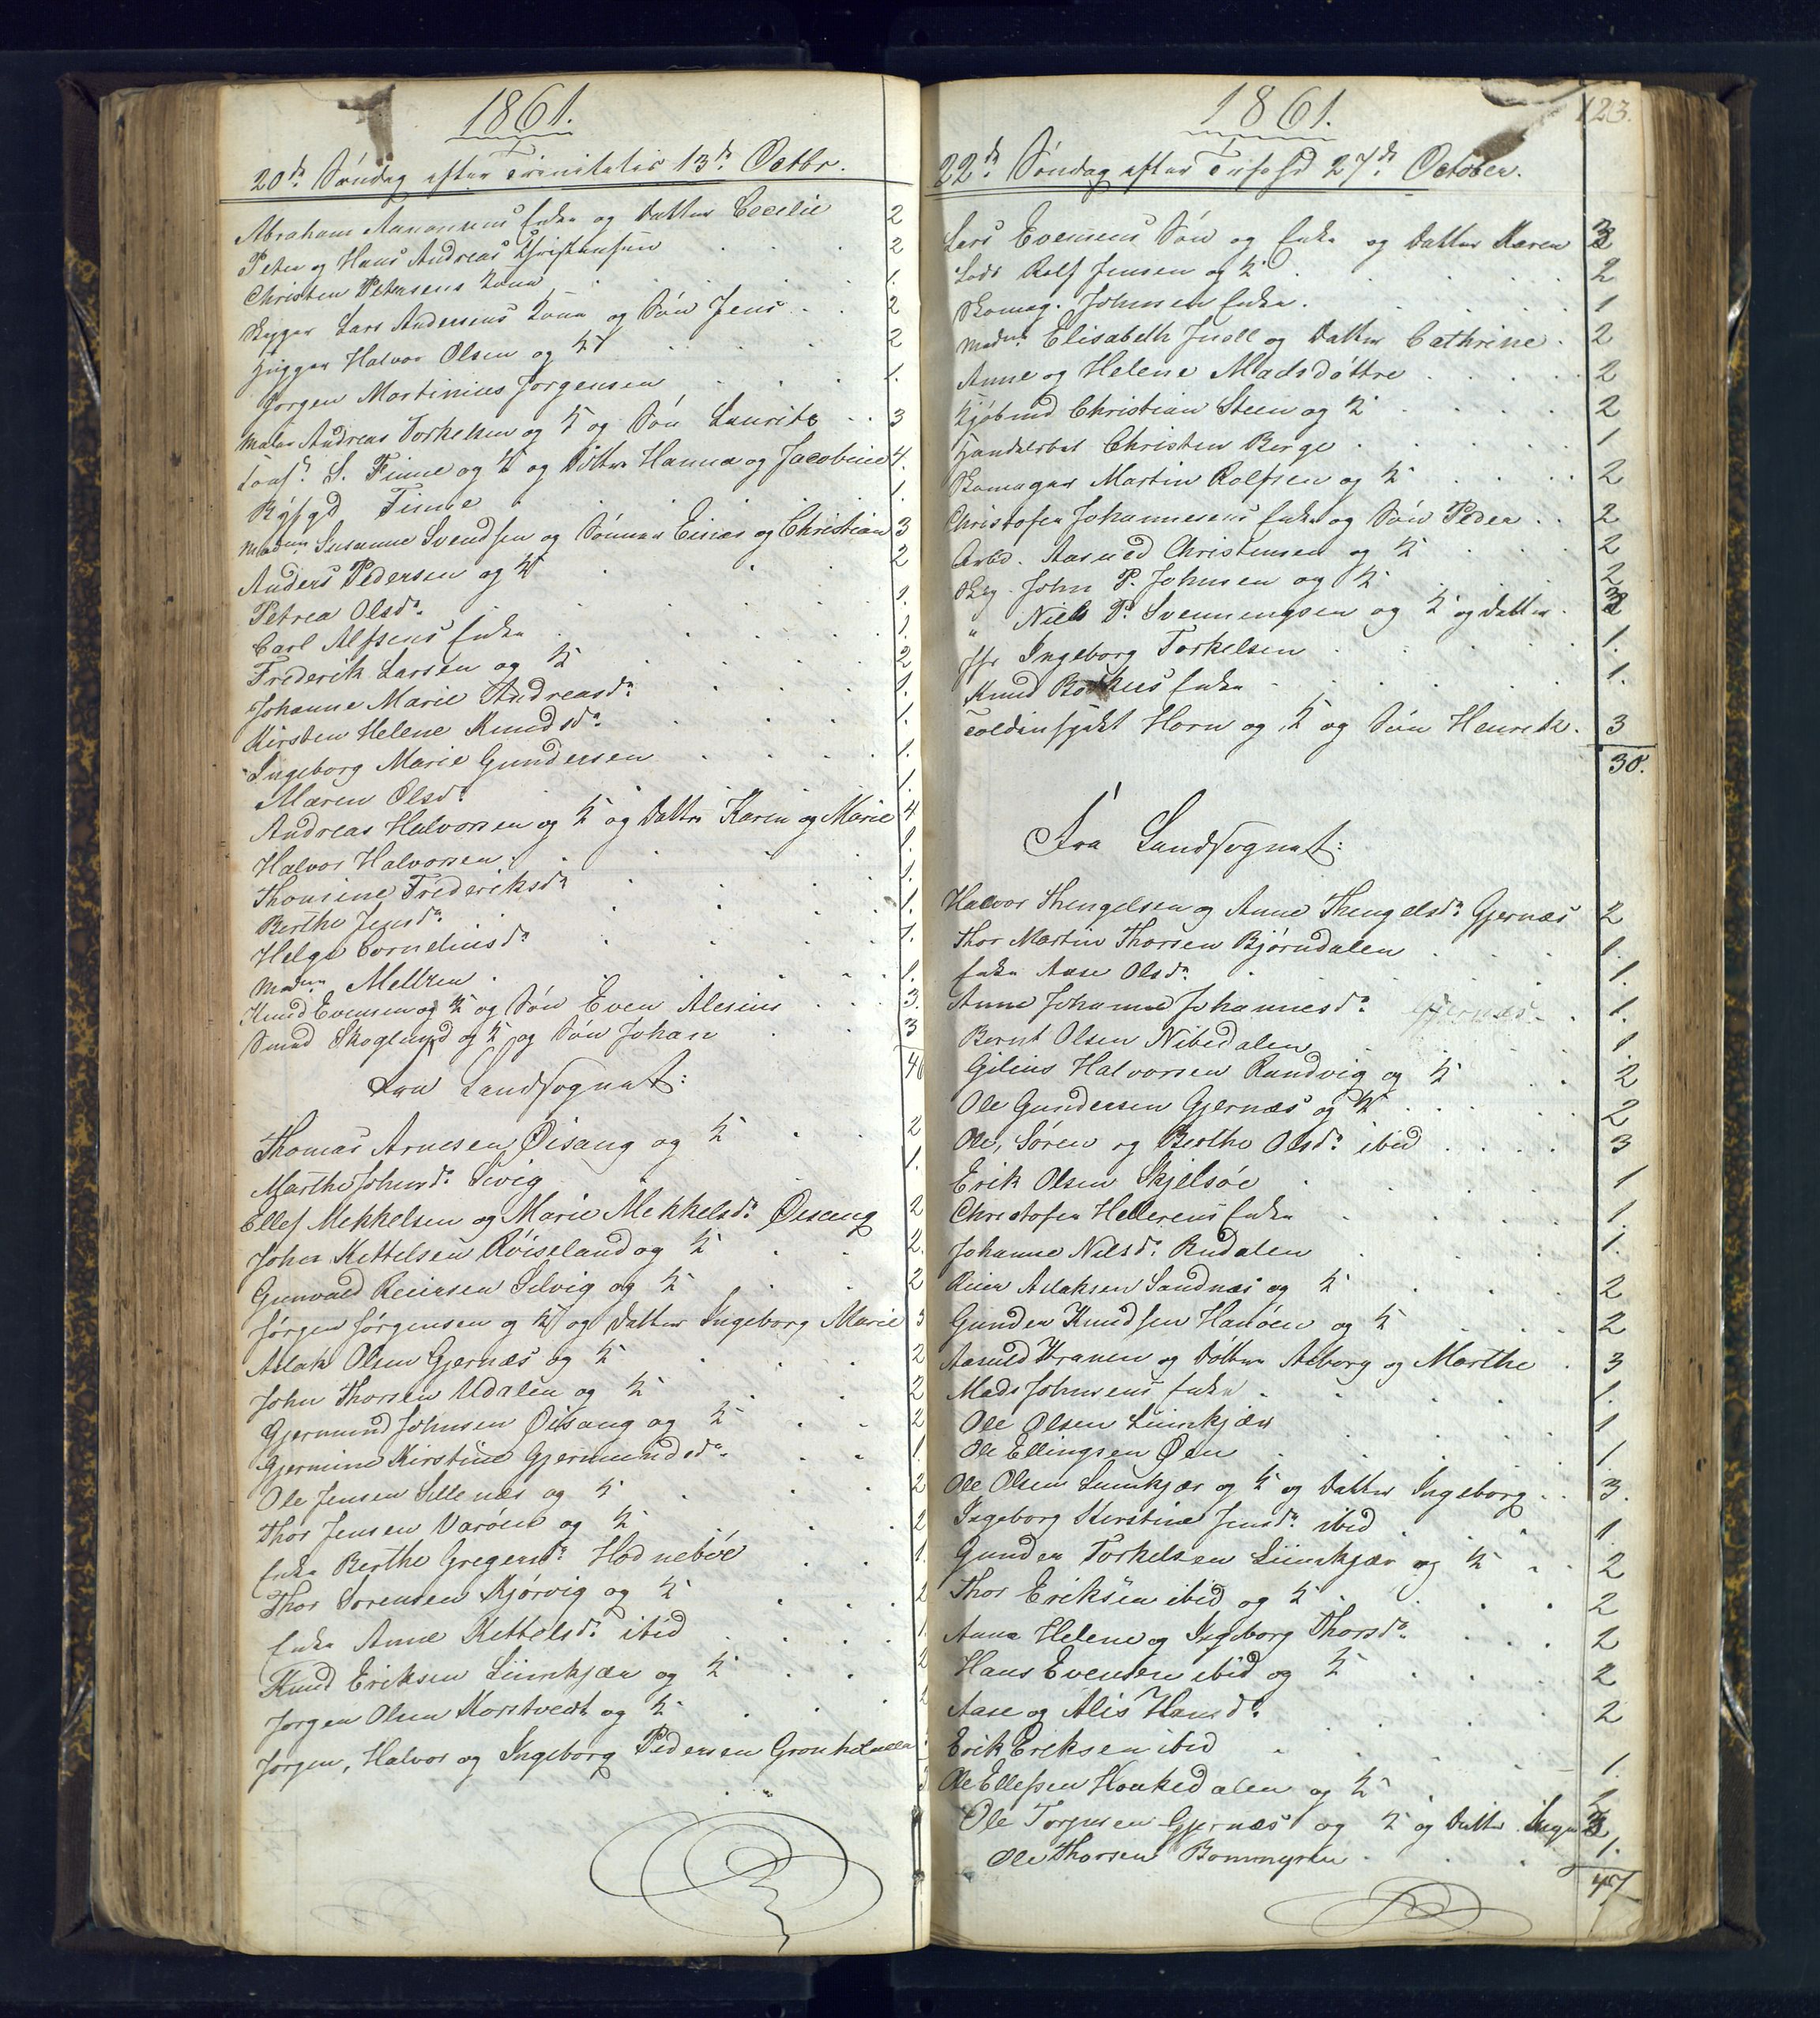 1861.
20de Søndag efter Trinitatis 13de Octbr.
Abraham Aanonsens Enke og Datter Cecilie 2
Peter og Hans Andreas Christensen . . . 2
Christen Petersens Kone . . . 1.
Skipper Lars Andersens Kone og Søn Jens . . 2
Halvor Olsen og K. . . . 2
Jørgen Martinius Jørgensen . . . 1.
Maler Andreas Torkelsen og K og Søn Laurits . . 3
S. Finne og K og Døttre Hanna og Jacobine 4.
Finne . . . 1.
Madme Susanne Svendsen og Sønner Einar og Christian 3
Anders Pedersen og K . . . 2
Petrea Olsdr . . . 1.
Carl Alfsens Enke . . . 1.
Frederik Larsen og K . . . 2
Johanne Marie Andreasdr . . . 1.
Kirsten Helene Knudsdr . . . 1.
Ingeborg Marie Gundersen . . . 1.
Maren Olsdr . . . 1.
Andreas Halvorsen og K og Døttre Karen og Marie 4
Halvor Halvorsen . . . 1.
Thomine Frederiksdr . . . 1.
Berthe Jensdr . . . 1.
Helge Corneliusdr . . . 1.
Madme Meltzen . . . 1.
Knud Evensen og K og Søn Even Alesius . . . 3.
Smed Skoglund og K og Søn Johan . . . 3
46
Fra Landsognet:
Thomas Arnesen Øisang og K . . 2
Marthe Johnsdr Sivig 1.
Ellef Mekkelsen og Marie Mekkelsdr Øisang 2
John Kettelsen Røiseland og K . . 2.
Gunvald Reiersen Selvig og K . . . 2
Jørgen Jørgensen og K og Datter Ingeborg Marie 3
Aslak Olsen Gjernæs og K . . . 2
John Thorsen Udalen og K . . . 2
Gjermund Johnsen Øisang og K . . 2
Gjermine Kirstine Gjermundsdr . . 1.
Ole Jensen Sillenæs og K . . . 2
Thor Jensen Varøen og K . . . 2
Enke Berthe Gregersdr Hødnebøe . . 1.
Thor Sørensen Kjørvig og K . . . 2
Enke Anne Kettelsdr ibid . . . 1.
Knud Eriksen Liimkjær og K . . 2
Jørgen Olsen Morstvedt og K . . . 2
Jørgen, Halvor og Ingeborg Pedersen Grønhilmen
. . 3
1861.
123.
22de Søndag efter Trefold 27de October.
Lars Evensens Søn og Enke og Datter Karen 3
Lods Rolf Jensen og K . . . 2
Skomag. Johnsen Enke . . . 1
Madme Elisabeth Juell og Datter Cathrine . 2
Anne og Helene Madsdøttre . . . 2
Kjøbmd Christian Steen og K . . . 2
Handelsbet Christen Berge . . . 1
Skomager Martin Rolfsen og K . . . 2
Christofer Johannesens Enke og Søn Peder . . 2
Arbd. Aanud Christensen og K . . . 2
Skp. John P. Johnsen og K . . . 2
" Niels P. Svenningsen og K og Datter . 3
Jfr Ingeborg Torkelsen . . . 1.
Knud Enke . . . 1.
Toldinspekt Horn og K og Søn Henrik . 3
30.
Fra Landsognet:
Halvor Thengelsen og Anne Thengelsdr Gjernæs 2
Thor Martin Thorsen Bjørndalen . . . 1.
Enke Aase Olsdr . . . 1.
Anne Johanne Johannesdr Gjernæs . . 1.
Bernt Olsen Nibedalen . . . 1.
Gilius Halvorsen Randvig og K . . 2
Ole Gundersen Gjernæs og K . . . 2
Ole, Søren og Berthe Olsdr ibid . . . 3
Erik Olsen Skjelsøe . . . 1
Christofer Hellerens Enke . . . 1.
Johanne Nilsdr Rudalen . . . 1.
Reier Aslaksen Sandnæs og K . . . 2
Gunder Knudsen Hanøen og K . . . 2
Aanuld Tranen og Døttre Asborg og Marthe . 3
Mads Johnsens Enke . . . 1.
Ole Olsen Liimkjær . . . 1
Ole Ellingsen Øen . . . 1.
Ole Olsen Liimkjær og K og Datter Ingeborg . . 3.
Ingeborg Kirstine Jensdr ibid . . . 1.
Gunder Torkelsen Liimkjær og K . . 2
Thor Eriksen ibid og K . . . 2
Anna Helene og Ingeborg Thorsdr . . . 2
Hans Evensen ibid og K . . . 2
Aase og Alis Hansdr . . . 2
Erik Eriksen ibid . . . 1.
Ole Ellefsen Haukedalen og K . 2
Ole Torjusen Gjernæs og K og Datter 3
Ole Thorsen Bommyren . . . 1.
47